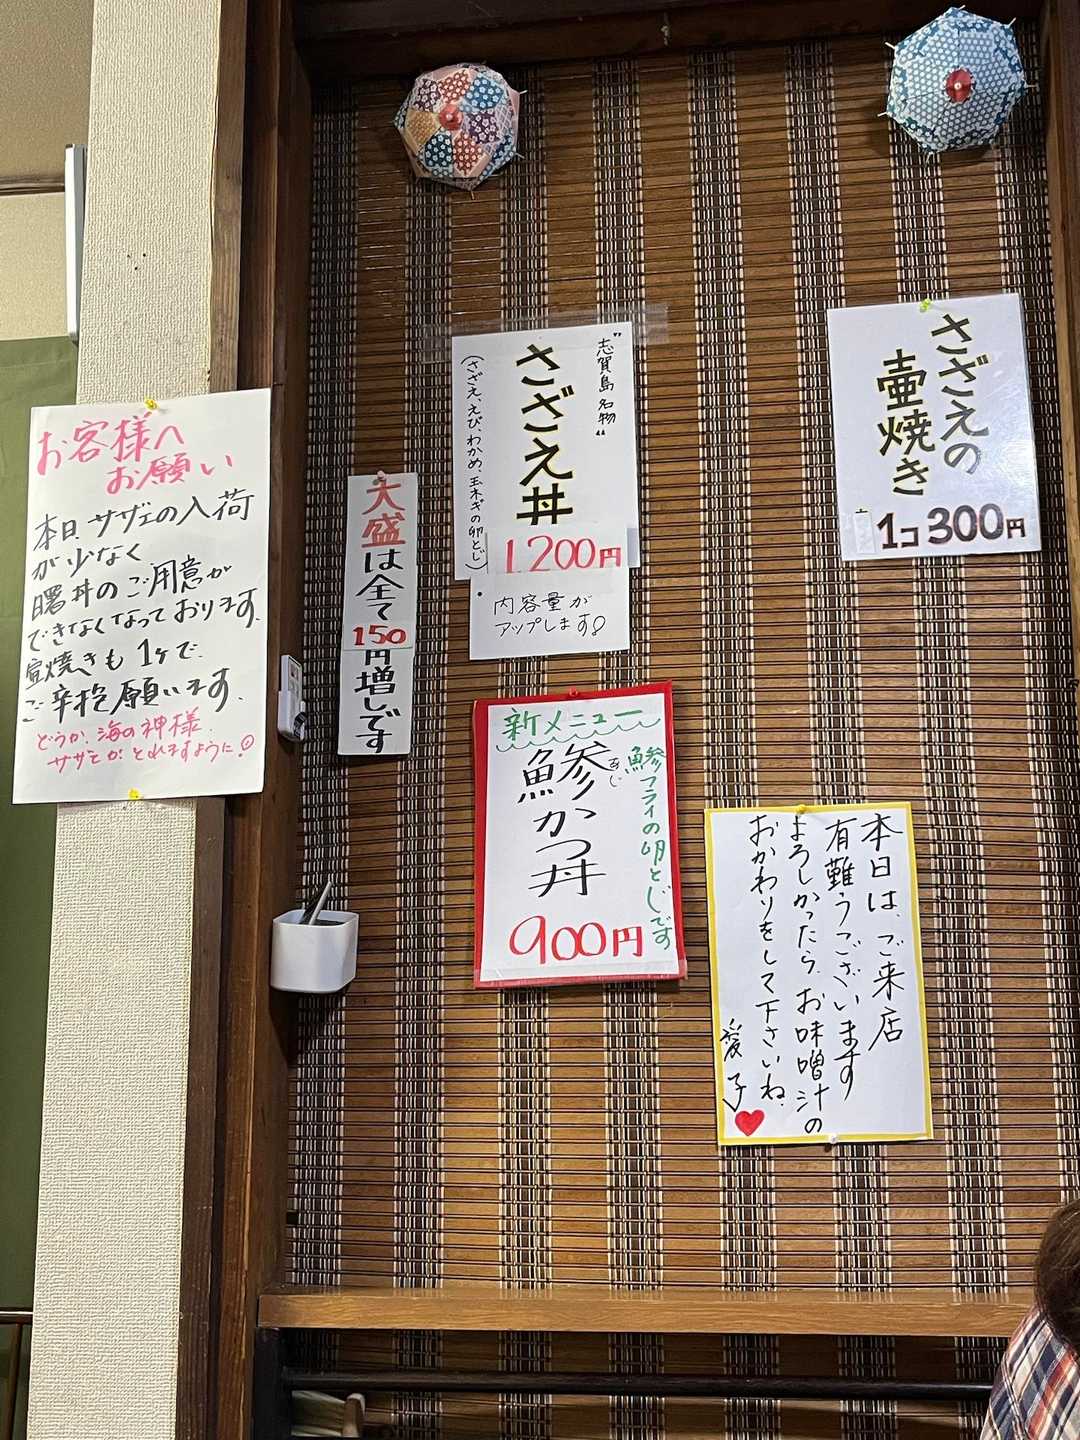 お客様へ
お願い
本日サザエの入荷
が少なく
曙丼のご用意が
できなくなっております.
壷焼きも1ヶで.
ご辛抱願います.
どうか、海の神様.
サザエがとれますように!
大盛は全て150円増しです
"志賀島名物"
さざえ丼
(さざえ、えび、わかめ、玉ネギの卵とじ)
1200円
内容量が
アップします!
さざえの
壷焼き
1コ300円
新メニュー
鯵フライの卵とじです
鯵かつ丼
あじ
900円
本日は、ご来店
有難うございます
よろしかったら、お味噌汁の
おかわりをして下さいね.
愛子